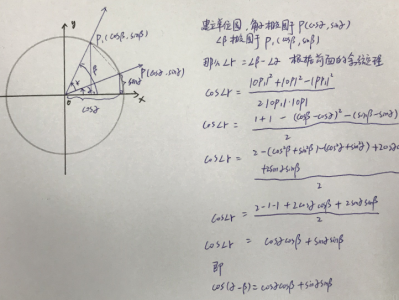 y
P₁(cosβ, sinβ)
β
P(cosα, sinα)
r
α
sinα
0
x
cosα
建立单位图, 角α相应于P(cosα, sinα)
∠β相应于P₁(cosβ, sinβ)
那么∠r = ∠β-∠α 根据前面的余弦定理
cos∠r = |OP₁|²+|OP|²-|PP₁|² / 2|OP₁|·|OP|
cos∠r = 1+1-(cosβ-cosα)²-(sinβ-sinα)² / 2
cos∠r = 2-(cos²β+sin²β)-(cos²α+sin²α)+2cosα +2sinαsinβ / 2
cos∠r = 2-1-1+2cosαcosβ+2sinαsinβ / 2
cos∠r = cosαcosβ+sinαsinβ
即
cos(α-β)=cosαcosβ+sinαsinβ